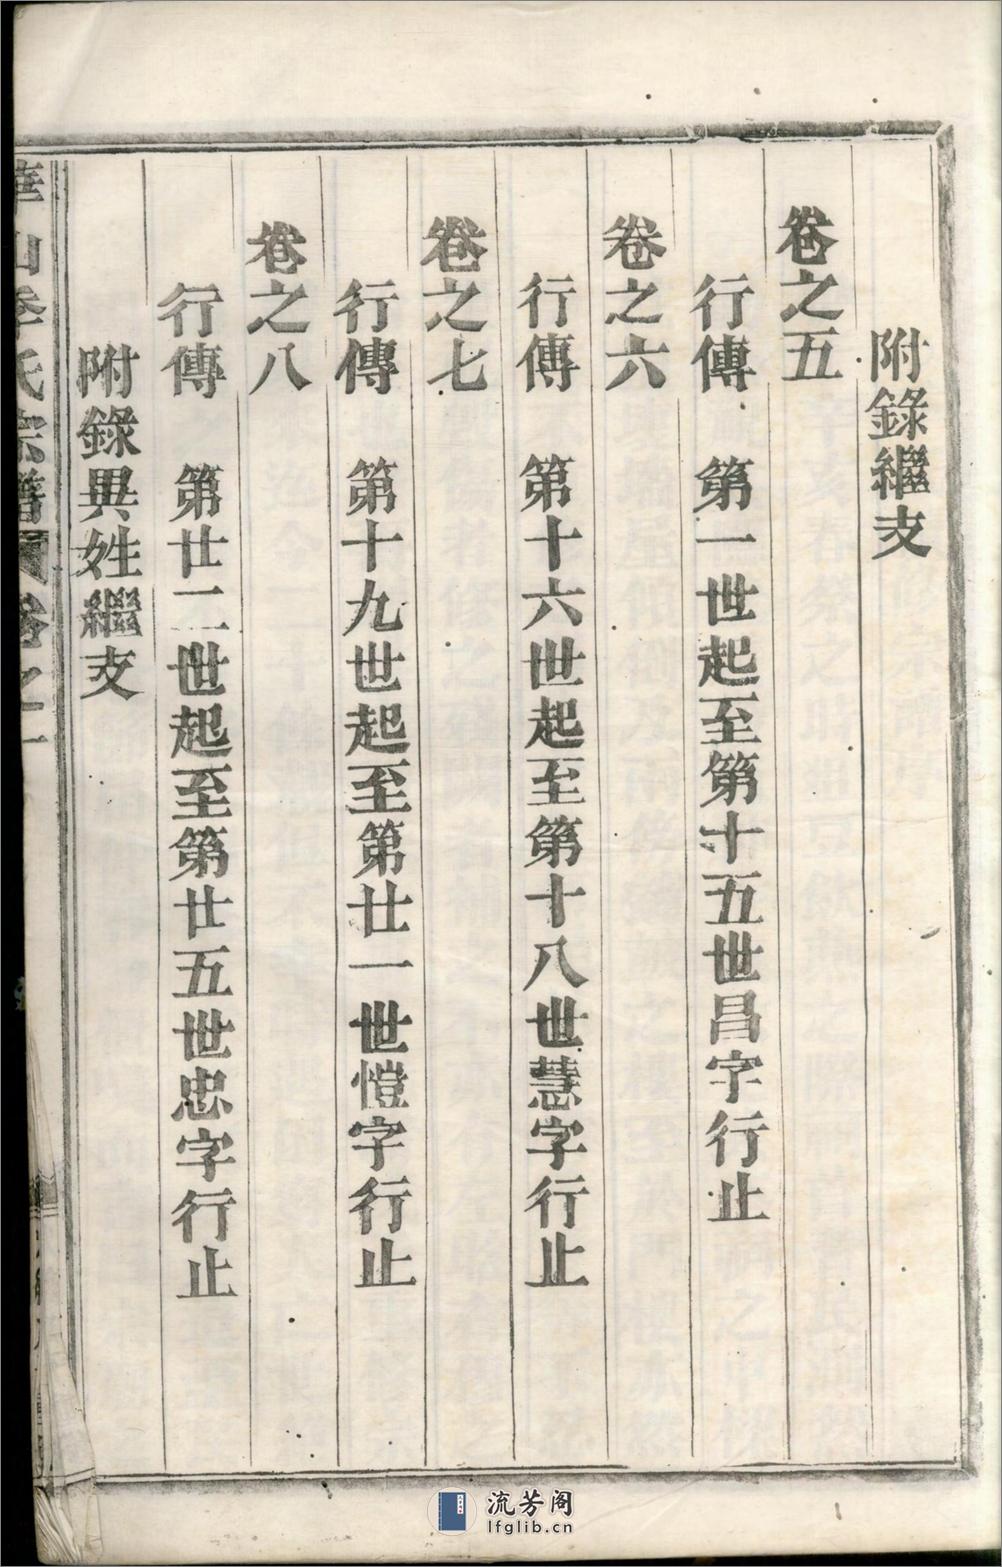 附錄繼支
卷之五
行傳　第一世起至第十五世昌字行止
卷之六
行傳　第十六世起至第十八世慧字行止
卷之七
行傳　第十九世起至第廿一世愷字行止
卷之八
行傳　第廿二世起至第廿五世忠字行止
附錄異姓繼支
華山李氏宗譜　卷之一
流芳阁
lfglib.cn